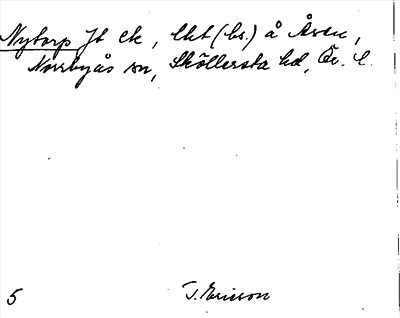 Nytorp Jb ek, lht (bs.) å Åsen,
Norrbyås sn, Sköllersta hd, Ör. l.
5 J. Ericson